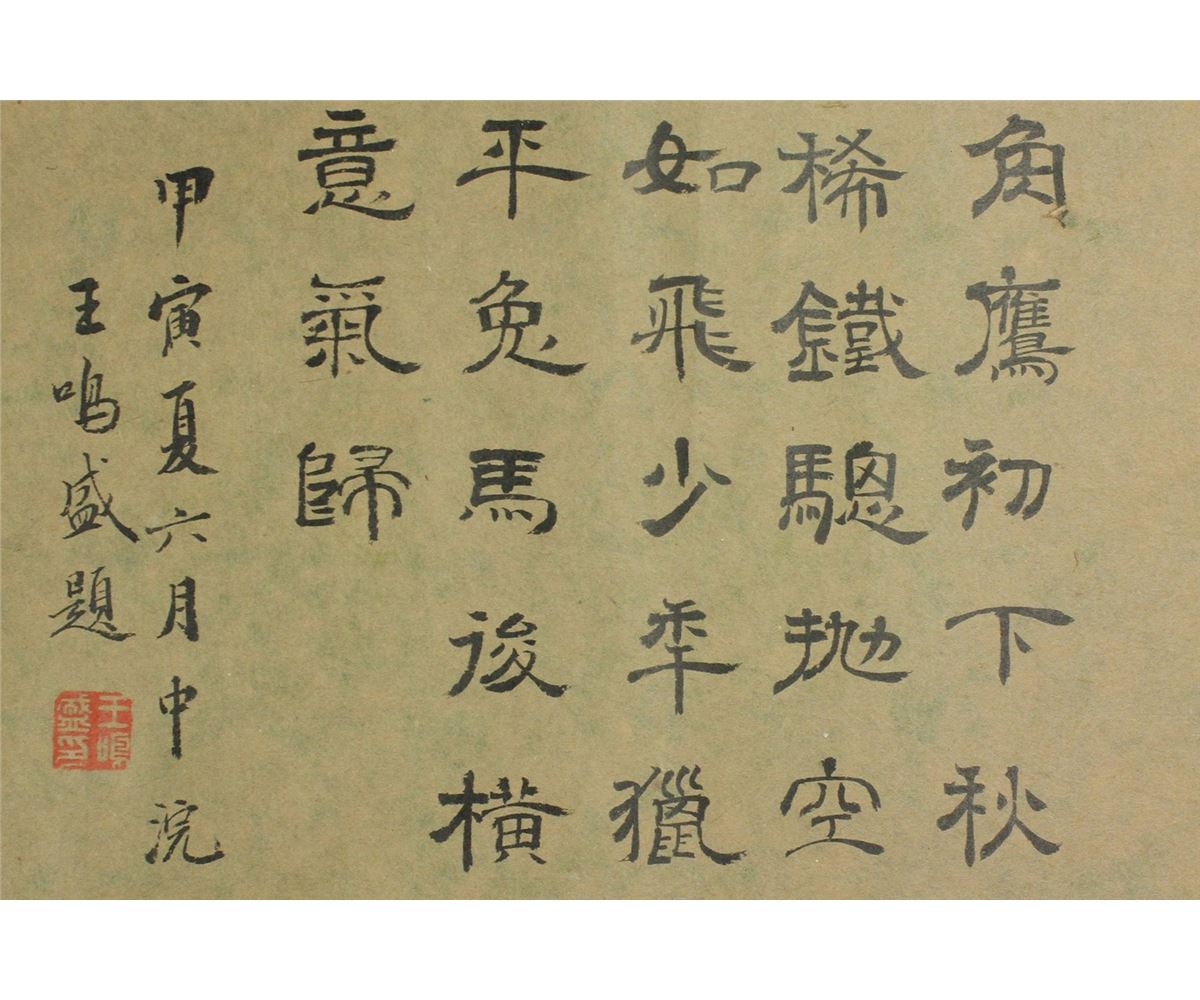 角鷹初下秋
桸鐵驄拋空
如飛少年獵
平兔馬後橫
意氣歸
甲寅夏六月中浣
王鳴盛題
王鳴
盛印